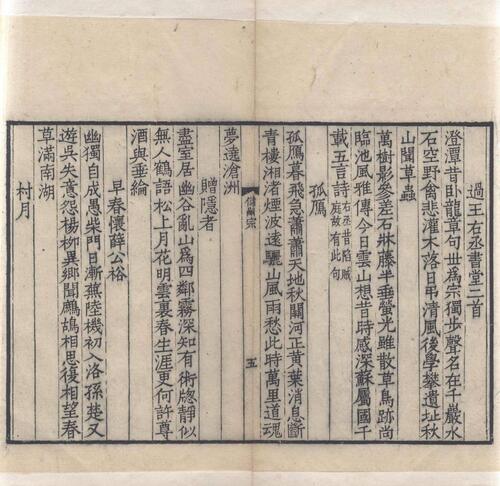 過王右丞書堂二首
澄潭昔卧龍章句世爲宗獨步聲名在千巖水
石空野禽悲灌木落日弔清風後學攀遺址秋
山聞草蟲
萬樹影參差石牀藤半垂螢光雖散草鳥跡尚
臨池風雅傳今日雲山想昔時感深蘇屬國千
載五言詩 右丞昔陷賊
庭故有此句
孤鴈
孤鴈暮飛急蕭蕭天地秋關河正黃葉消息斷
青樓湘渚煙波遠驪山風雨愁此時萬里道魂
夢遶滄洲
儲嗣宗 五
贈隱者
盡室居幽谷亂山爲四鄰霧深知有術牕靜似
無人鶴語松上月花明雲裏春生涯更何許尊
酒與垂綸
早春懷薛公裕
幽獨自成愚柴門日漸蕪陸機初入洛孫楚又
遊吳失意怨楊柳異鄉聞鷓鴣相思復相望春
草滿南湖
村月